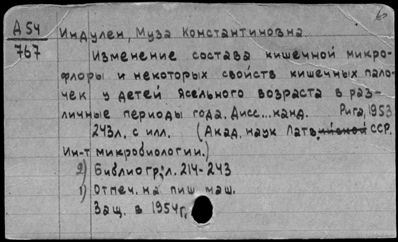 Д54
767
Индулен, Муза Константиновна
Изменение состава кишечной микро-
флоры и некоторых свойств кишечных пало-
чек у детей ясельного возраста в раз-
личные периоды года. Дисс...канд. Рига, 1953
243л. с илл. (Акад. наук Латв. ССР.
Ин-т микробиологии.)
2) Библиогр.: л. 214-243
1) Отпеч. на пиш. маш.
Защ. в 1954г.